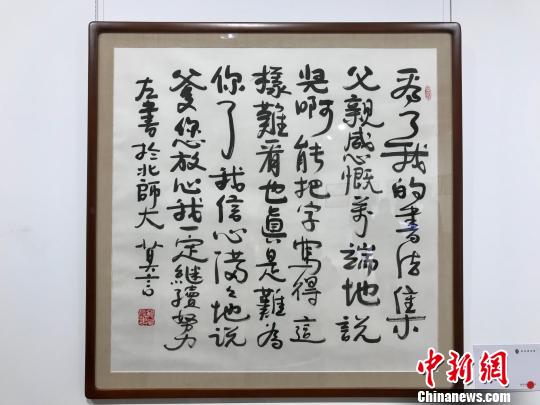 看了我的書法集
父親感慨萬端地說
兒啊能把字寫得這
樣難看也真是難為
你了我信心滿々地說
爹您放心我一定繼續努力
左書於北師大 莫言
中新網
Chinanews.com